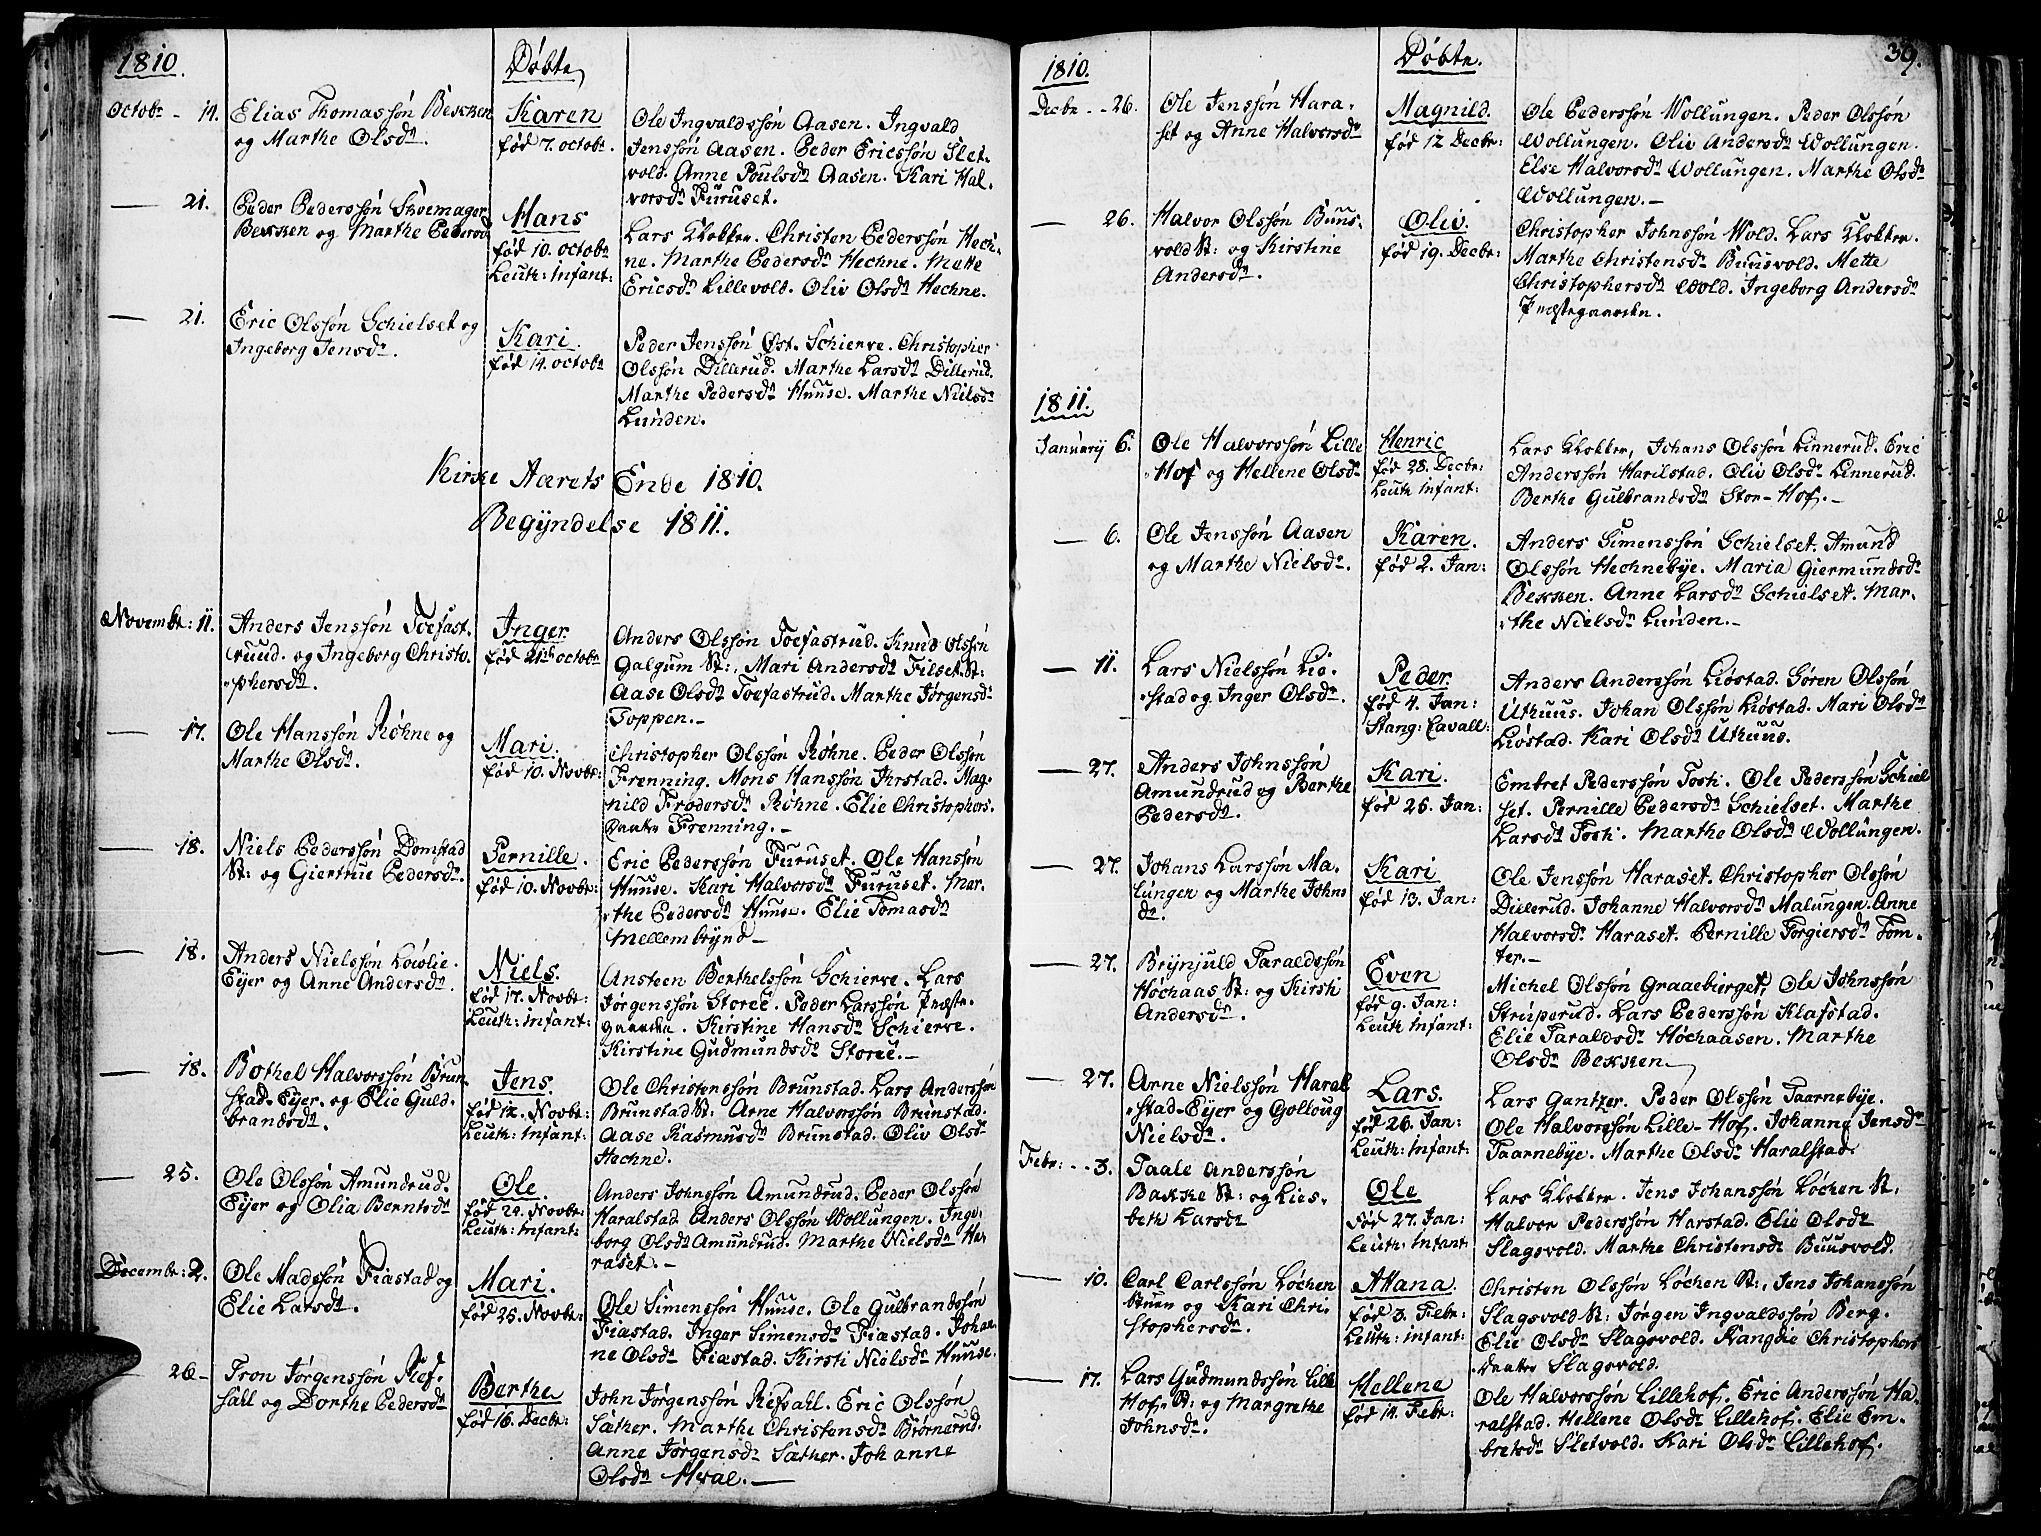 1810.
Døbte
Octobr - 14.
Elias Thomassøn Bekken
og Marthe Olsdr.
Karen
fød 7. octobr.
Ole Ingvaldssøn Aasen. Ingvald
Jenssøn Aasen. Peder Ericssøn Slet-
vold. Anne Poulsdr Aasen. Kari Hal-
vorsdr Furuset.
— 21.
Peder Pederssøn Skoemager
Bekken og Marthe Pedersd
Hans
fød 10. octobr
Leuth: Infant:
Lars Klokker. Christen Pederssøn Hech-
ne. Marthe Pedersdr Hechne. Mette
Ericsdr Lillevold. Oliv Olsdr Hechne.
— 21.
Eric Olssøn Schielset og
Ingeborg Jensdr.
Kari.
fød 14. octobr
Peder Jenssøn Øst. Schierve. Christopher
Olssøn Dillerud. Marthe Larsdr Dillerud.
Marthe Pedersdr Huuse. Marthe Nielsdr
Lunden.
Kirke Aarets Ende 1810.
Begyndelse 1811.
Novembr: 11.
Anders Jenssøn Toefast-
ruud. og Ingeborg Christo-
phersdr.
Inger.
fød 21de octobr
Anders Olssøn Toefastrud. Knud Olssøn
Galgum St:, Mari Andersdr Filset. St:
Aase Olsdr Toefastrud. Marthe Jørgensdr
Toppen.-
— 17.
Ole Hanssøn Røhne og
Marthe Olsdr.
Mari.
fød 10. Novbr:
Christopher Olssøn Røhne. Peder Olssøn
Frenning. Mons Hanssøn Ihrstad. Mag-
nild Frodersdr Røhne. Elie Christophers-
Daatter Frenning.-
— 18.
Niels Pederssøn Domstad
St: og Giertrue Pedersdr.
Pernille.
fød 10. Novbr:
Eric Pederssøn Furuset. Ole Hanssøn
Huuse. Kari Halvorsdr Furuset. Mar-
the Pedersdr Huuse. Elie Tomasdr
Mellembrynd-
— 18.
Anders Nielssøn Løvlie.
Eyer og Anne Andersdr.
Niels.
fød 17. Novbr:
Leuth: infant:
Ansteen Berthelssøn Schierve. Lars
Jørgenssøn Storee. Peder Larssøn Præste-
gaarden. Kirstine Hansdr Schierve.
Kirstine Gudmundsdr Storee.-
— 18.
Bothel Halvorssøn Brun-
stad. Eyer. og Elie Guld-
brandsdr.
Jens.
fød 12. Novbr:
Leuth: Infant:
Ole Christenssøn Brunstad. Lars Anderssøn
Brunstad St: Arne Halvorssøn Brunstad.
Aase Rasmusdr Brunstad. Oliv Olsdr
Hechne.
— 25.
Ole Olssøn Amundrud.
Eyer og Olia Berntsdr
Ole.
fød 20. Novbr:
Leuth: Infant:
Anders Johnssøn Amundrud. Peder Olssøn
Haralstad Anders Olssøn Wollungen. Inge-
borg Olsdr Amundrud. Marthe Nielsdr Ha-
raset.-
Decembr: 2.
Ole Madssøn Fiastad og
Elie Larsdr.
Mari.
fød 25. Novbr:
Ole Simenssøn Huuse. Ole Gulbrandssøn
Fiastad. Inger Simensdr Fiastad. Johan-
ne Olsdr Fiastad. Kirsti Nielsdr Huuse.
26-
Tron Jørgenssøn Ref-
sahl og Dorthe Pedersdr
Berthe
fød 16. Decbr:
John Jørgenssøn Refsahl. Eric Olssøn
Sather. Marthe Christensdr Biørnerud.
Anne Jørgensdr Sather. Johanne
Olsdr Hval.-
39.
1810.
Døbte.
Decbr - - 26.
Ole Jenssøn Hara-
set og Anne Halvorsdr
Magnild.
fød 12 Decbr:
Ole Pederssøn Wollungen. Peder Olssøn
Wollungen. Oliv Andersdr Wollungen.
Else Halvorsdr Wollungen. Marthe Olsdr
Wollungen.-
— 26.
Halvor Olssøn Buus-
vold St: og Kirstine
Andersdr.
Oliv.
fød 19. Decbr:
Christopher Johnssøn Wold. Lars Klokker.
Marthe Christensdr Buusvold. Mette
Christophersdr Wold. Ingeborg Andersdr
Præstegaarden.
1811.
Januarij 6.
Ole Halvorssøn Lille
-Hof og Hellene Olsdr
Henric
fød 28. Decbr:
Leuth Infant:
Lars Klokker, Johans Olssøn Linnerud. Eric
Anderssøn Harilstad. Oliv Olsdr Linnerud.
Berthe Gulbrandsdr Stor-Hof.-
— 6.
Ole Jenssøn Aasen
og Marthe Nielsdr.
Karen.
fød 2. Jan:
Anders Simenssøn Schielset. Amund
Olssøn Hechnebye. Maria Giermundsdr
Bekken. Anne Larsdr Schielset. Mar-
the Nielsdr Lunden.-
— 11.
Lars Nielssøn Liø-
stad og Inger Olsdr.
Peder.
fød 4. Jan:
Stang: Cavall:
Anders Anderssøn Liøstad. Søren Olssøn
Uthuus. Johan Olssøn Liøstad. Mari Olsdr
Liøstad. Kari Olsdr Uthuus.
— 27.
Anders Johnssøn
Amundrud og Berthe
Pedersdr.
Kari.
fød 25. Jan:
Embret Pederssøn Toshi. Ole Pederssøn Schiel
set. Pernille Pedersdr Schielset. Marthe
Larsdr Tosh. Marthe Olsdr Wollungen.
— 27.
Johans Larssøn Ma-
lungen og Marthe Johns
dr.
Kari
fød 13. Jan:
Ole Jenssøn Haraset. Christopher Olssøn
Dillerud. Johanne Halvorsdr Malungen. Anne
Halvorsdr Haraset. Pernille Torgiersdr Tom-
ter.-
— 27.
Brynjuld Taraldssøn
Hochaas St: og Kirsti
Andersdr.
Even
fød 9. Jan:
Leuth Infant:
Michel Olssøn Graaeburget, Ole Johnssøn
Struperud. Lars Pederssøn Klafstad.
Elie Taraldsdr Hochaasen. Marthe
Olsdr Bekken
— 27.
Arne Nielssøn Haral
-stad-Eyer og Golloug
Nielsdr.
Lars.
fød 26. Jan:
Leuth: Infant:
Lars Gantzer. Peder Olssøn Taarnebye.
Ole Halvorssøn Lille-Hof. Johanne Jensdr
Taarnebye. Marthe Olsdr Haralstad
Febr: - - 3.
Taale Anderssøn
Bakke St: og Lies-
beth Larsdr
Ole
Fød 27. Jan:
Leuth: Infant
Lars Klokker. Jens Johanssøn Løchen St.
Halvor Pederssøn Harstad. Elie Olsdr
Slagsvold. Marthe Christensdr Buusvold.
— 10.
Carl Carlssøn Løchen
Huun og Kari Chri-
stophersdr.
Attana.
fød 3. Febr:
Leuth: infant:
Christen Olssøn Løchen St:, Jens Johanssøn
Slagsvold St: Jørgen Ingvaldssøn Berg.
Elie Olsdr Slagsvold. Rangdie Christophers
Daatter Slagsvold.
— 17.
Lars Gudmundssøn Lille
Hof. St: og Margrethe
Johnsdr.
Hellene
fød 14. Febr:
Ole Halvorssøn Lillehof. Eric Anderssøn Ha-
ralstad. Hellene Olsdr Lillehof. Elie Em-
bretsdr Sletvold. Kari Olsdr Lillehof.